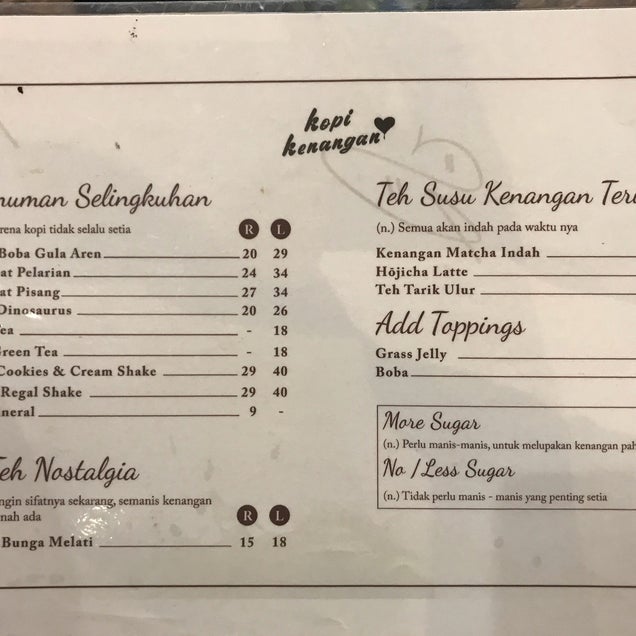 kopi
kenangan
Selingkuhan
kopi tidak selalu setia
R L
Boba Gula Aren 20 29
Pelarian 24 34
Pisang 27 34
Dinosaurus 20 26
- 18
Green Tea - 18
Cookies & Cream Shake 29 40
Regal Shake 29 40
9 -
Teh Nostalgia
sifatnya sekarang, semanis kenangan
ada
R L
Bunga Melati 15 18
Teh Susu Kenangan
(n.) Semua akan indah pada waktu nya
Kenangan Matcha Indah
Hōjicha Latte
Teh Tarik Ulur
Add Toppings
Grass Jelly
Boba
More Sugar
(n.) Perlu manis-manis, untuk melupakan kenangan
No / Less Sugar
(n.) Tidak perlu manis - manis yang penting setia